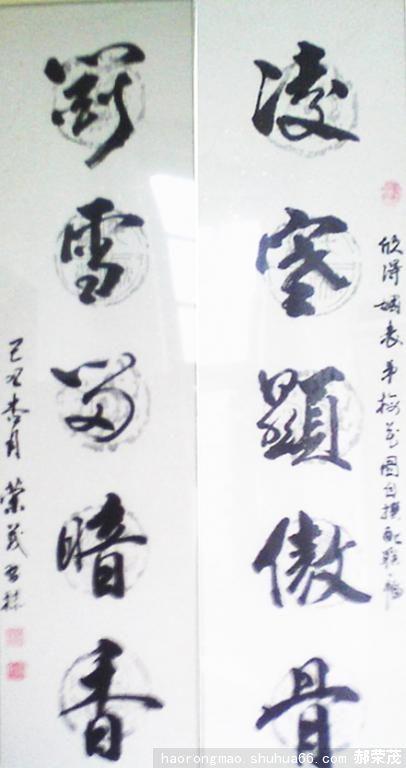 欣得表弟梅花圖自撰配聯
凌寒顯傲骨
鬥雪留暗香
己丑杏月 榮茂書
haorongmao.shuhua66.com 郝荣茂